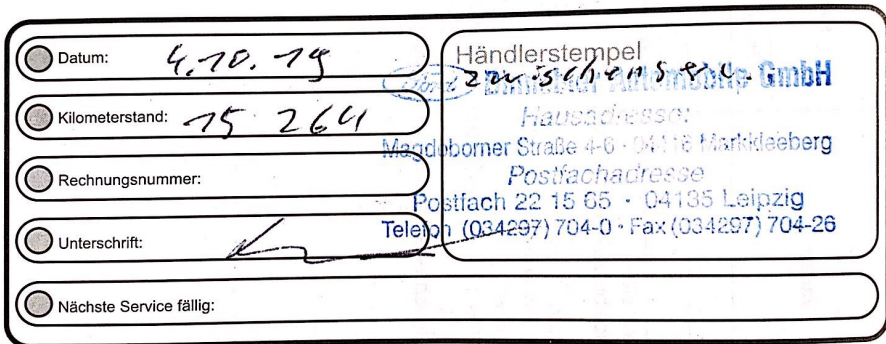 Datum: 4.10.19
Kilometerstand: 15 264
Rechnungsnummer:
Unterschrift:
Nächste Service fällig:
Händlerstempel
zwischenserv.
Ford Automobile GmbH
Hausadresse:
Magdeborner Straße 4-6 · 04416 Markkleeberg
Postfachadresse
Postfach 22 15 65 · 04135 Leipzig
Telefon (034297) 704-0 · Fax (034297) 704-26